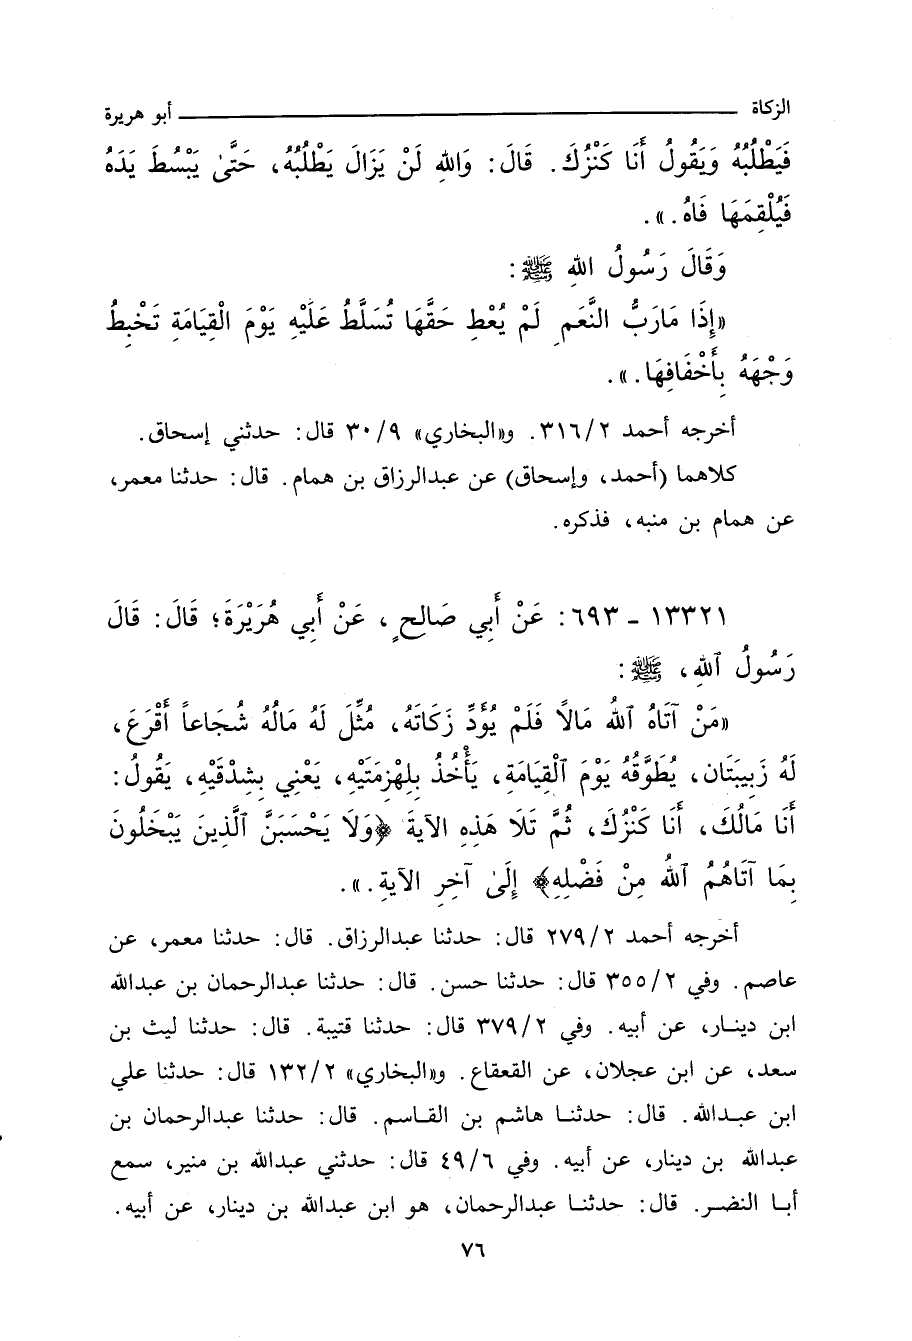 الزكاة ــــــــــــــــــــ أبو هريرة
فَيَطْلُبُهُ وَيَقُولُ أَنَا كَنْزُكَ. قَالَ: وَاللهِ لَنْ يَزَالَ يَطْلُبُهُ، حَتَّىٰ يَبْسُطَ يَدَهُ
فَيُلْقِمَهَا فَاهُ.».
وَقَالَ رَسُولُ اللهِ ﷺ:
«إِذَا مَارَبُّ النَّعَمِ لَمْ يُعْطِ حَقَّهَا تُسَلَّطُ عَلَيْهِ يَوْمَ الْقِيَامَةِ تَخْبِطُ
وَجْهَهُ بِأَخْفَافِهَا.».
أخرجه أحمد ٣١٦/٢. و«البخاري» ٣٠/٩ قال: حدثني إسحاق.
كلاهما (أحمد، وإسحاق) عن عبدالرزاق بن همام. قال: حدثنا معمر،
عن همام بن منبه، فذكره.
١٣٣٢١ ـ ٦٩٣: عَنْ أَبِي صَالِحٍ، عَنْ أَبِي هُرَيْرَةَ؛ قَالَ: قَالَ
رَسُولُ ٱللهِ، ﷺ:
«مَنْ آتَاهُ ٱللهُ مَالًا فَلَمْ يُؤَدِّ زَكَاتَهُ، مُثِّلَ لَهُ مَالُهُ شُجَاعاً أَقْرَعَ،
لَهُ زَبِيبَتَانِ، يُطَوَّقُهُ يَوْمَ ٱلْقِيَامَةِ، يَأْخُذُ بِلِهْزِمَتَيْهِ، يَعْنِي بِشِدْقَيْهِ، يَقُولُ:
أَنَا مَالُكَ، أَنَا كَنْزُكَ، ثُمَّ تَلَا هَذِهِ الآيَةَ ﴿وَلَا يَحْسَبَنَّ ٱلَّذِينَ يَبْخَلُونَ
بِمَا آتَاهُمُ ٱللهُ مِنْ فَضْلِهِ﴾ إِلَىٰ آخِرِ الآيَةِ.».
أخرجه أحمد ٢٧٩/٢ قال: حدثنا عبدالرزاق. قال: حدثنا معمر، عن
عاصم. وفي ٣٥٥/٢ قال: حدثنا حسن. قال: حدثنا عبدالرحمان بن عبدالله
ابن دينار، عن أبيه. وفي ٣٧٩/٢ قال: حدثنا قتيبة. قال: حدثنا ليث بن
سعد، عن ابن عجلان، عن القعقاع. و«البخاري» ١٣٢/٢ قال: حدثنا علي
ابن عبدالله. قال: حدثنا هاشم بن القاسم. قال: حدثنا عبدالرحمان بن
عبدالله بن دينار، عن أبيه. وفي ٤٩/٦ قال: حدثني عبدالله بن منير، سمع
أبا النضر. قال: حدثنا عبدالرحمان، هو ابن عبدالله بن دينار، عن أبيه.
٧٦